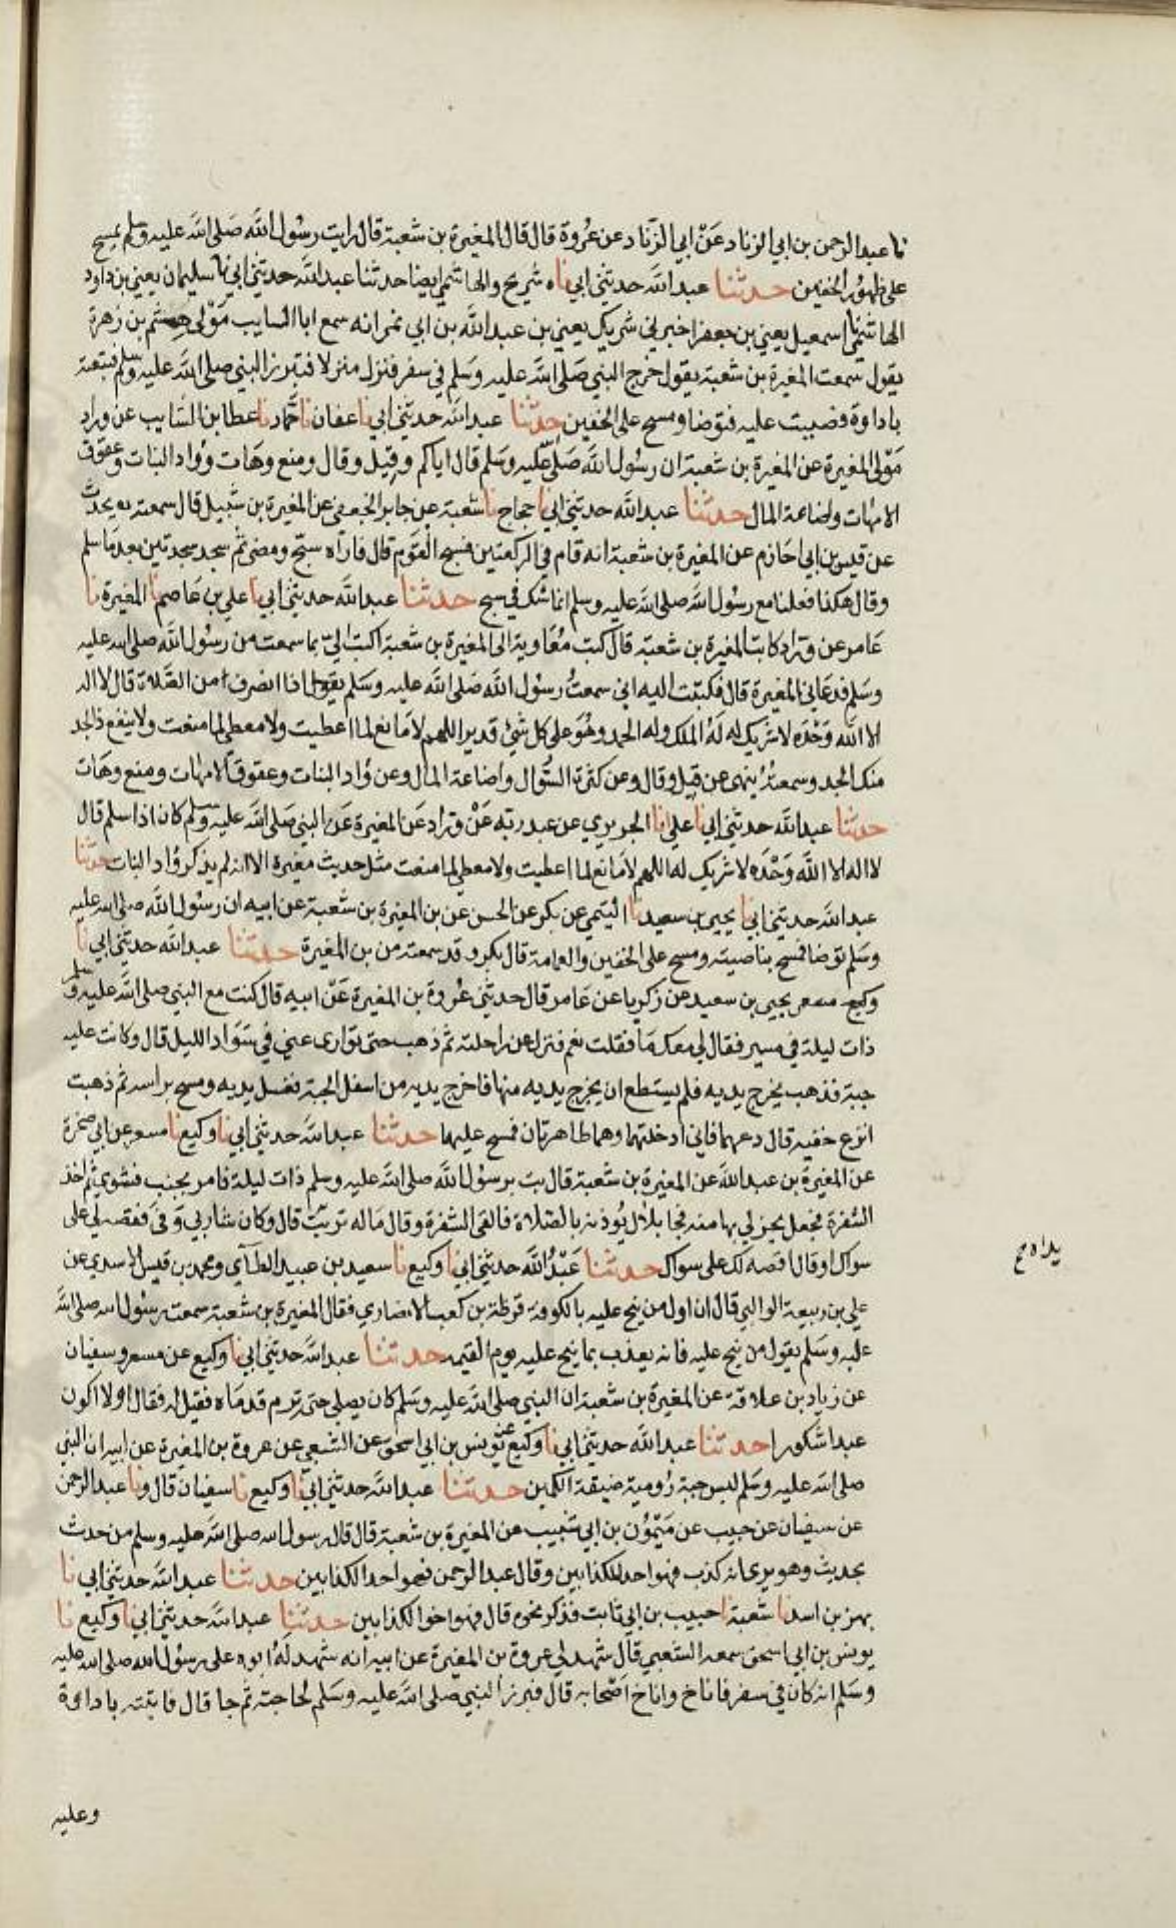 نا عبد الرحمن بن ابي الزناد عن ابي الزناد عن عروة قال قال المغيرة بن شعبة قال رايت رسول الله صلى الله عليه وسلم يمسح
على ظهور الخفين حدثنا عبد الله حدثني ابي ناه شريح والهاشمي ايضا حدثنا عبد الله حدثني ابي نا سليمان يعني بن داود
الهاشمي نا اسمعيل يعني بن جعفر اخبرني شريك يعني بن عبد الله بن ابي نمر انه سمع ابا السايب مولى هشم بن زهرة
يقول سمعت المغيرة بن شعبة يقول خرج النبي صلى الله عليه وسلم في سفر فنزل منزلا فتبرز النبي صلى الله عليه وسلم فتبعته
باداوة فصببت عليه فتوضا ومسح على الخفين حدثنا عبد الله حدثني ابي نا عفان نا حماد نا عطا بن السايب عن وراد
مولى المغيرة عن المغيرة بن شعبة ان رسول الله صلى الله عليه وسلم قال اياكم وقيل وقال ومنع وهات ووااد البنات وعقوق
الامهات واضاعة المال حدثنا عبد الله حدثني ابي نا حجاج نا شعبة عن جابر الجعفي عن المغيرة بن شبيل قال سمعته يحدث
عن قيس بن ابي حازم عن المغيرة بن شعبة انه قام في الركعتين فسبح القوم قال فاراه سبح ومضى ثم سجد سجدتين بعد ما سلم
وقال هكذا فعلنا مع رسول الله صلى الله عليه وسلم انما شك في سبح حدثنا عبد الله حدثني ابي نا علي بن عاصم نا المغيرة نا
عامر عن وراد كاتب المغيرة بن شعبة قال كتب معاوية الى المغيرة بن شعبة اكتب الي بما سمعت من رسول الله صلى الله عليه
وسلم فدعاني المغيرة قال فكتبت اليه اني سمعت رسول الله صلى الله عليه وسلم يقول اذا انصرف من الصلاة قال لا اله
الا الله وحده لا شريك له له الملك وله الحمد وهو على كل شئ قدير اللهم لا مانع لما اعطيت ولا معطي لما منعت ولا ينفع ذا الجد
منك الجد وسمعته ينهى عن قيل وقال وعن كثرة السؤال واضاعة المال وعن وااد البنات وعقوق الامهات ومنع وهات
حدثنا عبد الله حدثني ابي نا علي انا الجريري عن عبد ربه عن وراد عن المغيرة عن النبي صلى الله عليه وسلم كان اذا سلم قال
لا اله الا الله وحده لا شريك له اللهم لا مانع لما اعطيت ولا معطي لما منعت مثل حديث مغيرة الا انه لم يذكر وااد البنات حدثنا
عبد الله حدثني ابي نا يحيى بن سعيد نا التيمي عن بكر عن الحسن عن بن المغيرة بن شعبة عن ابيه ان رسول الله صلى الله عليه
وسلم توضا فمسح بناصيته ومسح على الخفين والعمامة قال بكر وقد سمعته من بن المغيرة حدثنا عبد الله حدثني ابي نا
وكيع يحيى بن سعيد عن زكريا عن عامر قال حدثني عروة بن المغيرة عن ابيه قال كنت مع النبي صلى الله عليه وسلم
ذات ليلة في مسير فقال لي معك ما فقلت نعم فنزل عن راحلته ثم ذهب حتى توارى عني في سواد الليل قال وكانت عليه
جبة فذهب يخرج يديه فلم يستطع ان يخرج يديه منها فاخرج يديه من اسفل الجبة فغسل يديه ومسح براسه ثم ذهبت
انزع خفيه قال دعهما فاني ادخلتهما وهما طاهرتان فمسح عليهما حدثنا عبد الله حدثني ابي نا وكيع نا مسعر عن ابي صخرة
عن المغيرة بن عبد الله عن المغيرة بن شعبة قال بت برسول الله صلى الله عليه وسلم ذات ليلة فامر بجنب فشوي ثم اخذ
الشفرة فجعل يحز لي بها منه فجا بلال يوذنه بالصلاة فالقى الشفرة وقال ماله تربت قال وكان شاربي وفى فقصه لي على
سواك او قال اقصه لك على سواك حدثنا عبد الله حدثني ابي نا وكيع نا سعيد بن عبيد الطآي ومحمد بن قيس الاسدي عن
يداه صح
علي بن ربيعة الوالبي قال ان اول من نيح عليه بالكوفة قرظة بن كعب الانصاري فقال المغيرة بن شعبة سمعت رسول الله صلى الله
عليه وسلم يقول من نيح عليه فانه يعذب بما نيح عليه يوم القيمه حدثنا عبد الله حدثني ابي نا وكيع عن مسعر وسفيان
عن زياد بن علاقة عن المغيرة بن شعبة ان النبي صلى الله عليه وسلم كان يصلي حتى ترم قدماه فقيل له فقال اولا اكون
عبدا شكورا حدثنا عبد الله حدثني ابي نا وكيع عن يونس بن ابي اسحق عن الشعبي عن عروة بن المغيرة عن ابيه ان النبي
صلى الله عليه وسلم لبس جبة رومية ضيقة الكمين حدثنا عبد الله حدثني ابي نا وكيع نا سفيان قال ونا عبد الرحمن
عن سفيان عن حبيب عن ميمون بن ابي شبيب عن المغيرة بن شعبة قال قال رسول الله صلى الله عليه وسلم من حدث
بحديث وهو يرى انه كذب فهو احد الكذابين وقال عبد الرحمن فهو احد الكذابين حدثنا عبد الله حدثني ابي نا
بهز بن اسد نا شعبة نا حبيب بن ابي ثابت فذكر نحوه قال فهو اخو الكذابين حدثنا عبد الله حدثني ابي نا وكيع نا
يونس بن ابي اسحق سمعه الشعبي قال شهد لي عروة بن المغيرة عن ابيه انه شهد له ابوه على رسول الله صلى الله عليه
وسلم انه كان في سفر فاناخ واناخ اصحابه قال فبرز النبي صلى الله عليه وسلم لحاجته ثم جا قال فاتيته باداوة
وعليه